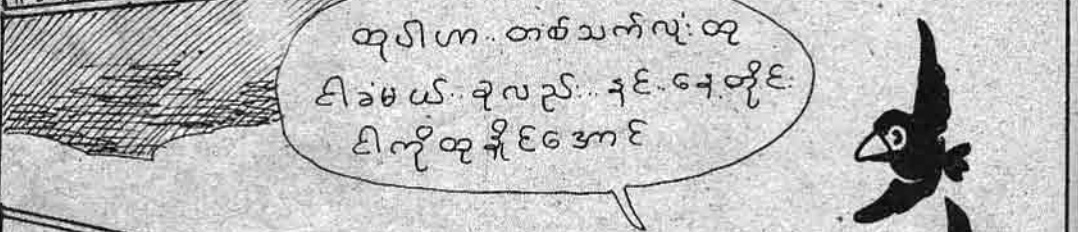 ထုပါဟာ..တစ်သက်လုံးထု
ငါခံမယ်..ခုလည်း..နင်..နေ့တိုင်း
ငါ့ကိုထုနိုင်အောင်